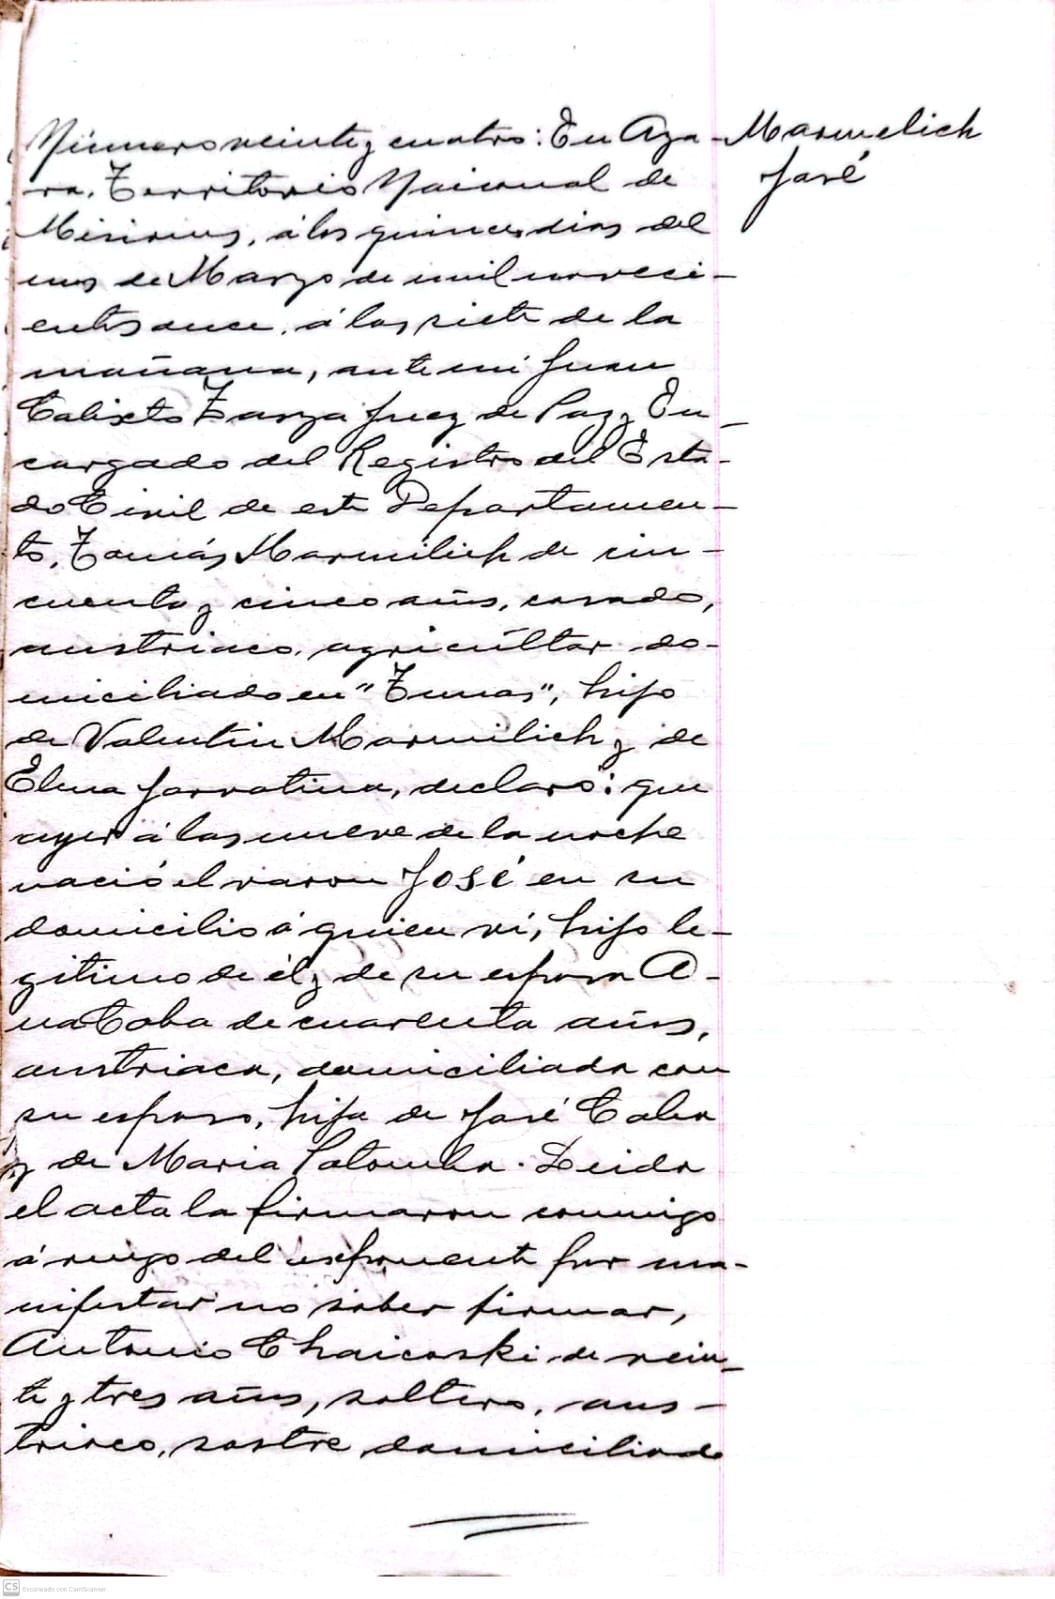 Número veinte y cuatro: En Aza-
ra, Territorio Nacional de
Misiones, á los quince dias del
mes de Marzo de mil noveci-
entos once, á las siete de la
mañana, ante mi Juan
Calixto Zarza Juez de Paz y En-
cargado del Registro del Esta-
do Civil de este Departamen-
to, Tomás Marmilich de cin-
cuenta y cinco años, casado,
austriaco, agricultor do-
miciliado en "Tunas", hijo
de Valentin Marmilich y de
Elena, declaró: que
ayer á las nueve de la noche
nació el varon José en su
domicilio á quien ví, hijo le-
gitimo de él y de su esposa A-
na Coba de cuarenta años,
austriaca, domiciliada con
su esposo, hija de José Coba
y de Maria. Leida
el acta la firmaron conmigo
á ruego del exponente por ma-
nifestar no saber firmar,
Antonio Chaicoski de vein-
te y tres años, soltero, aus-
triaco, sastre domiciliado
Marmelich
José
CS Escaneado con CamScanner